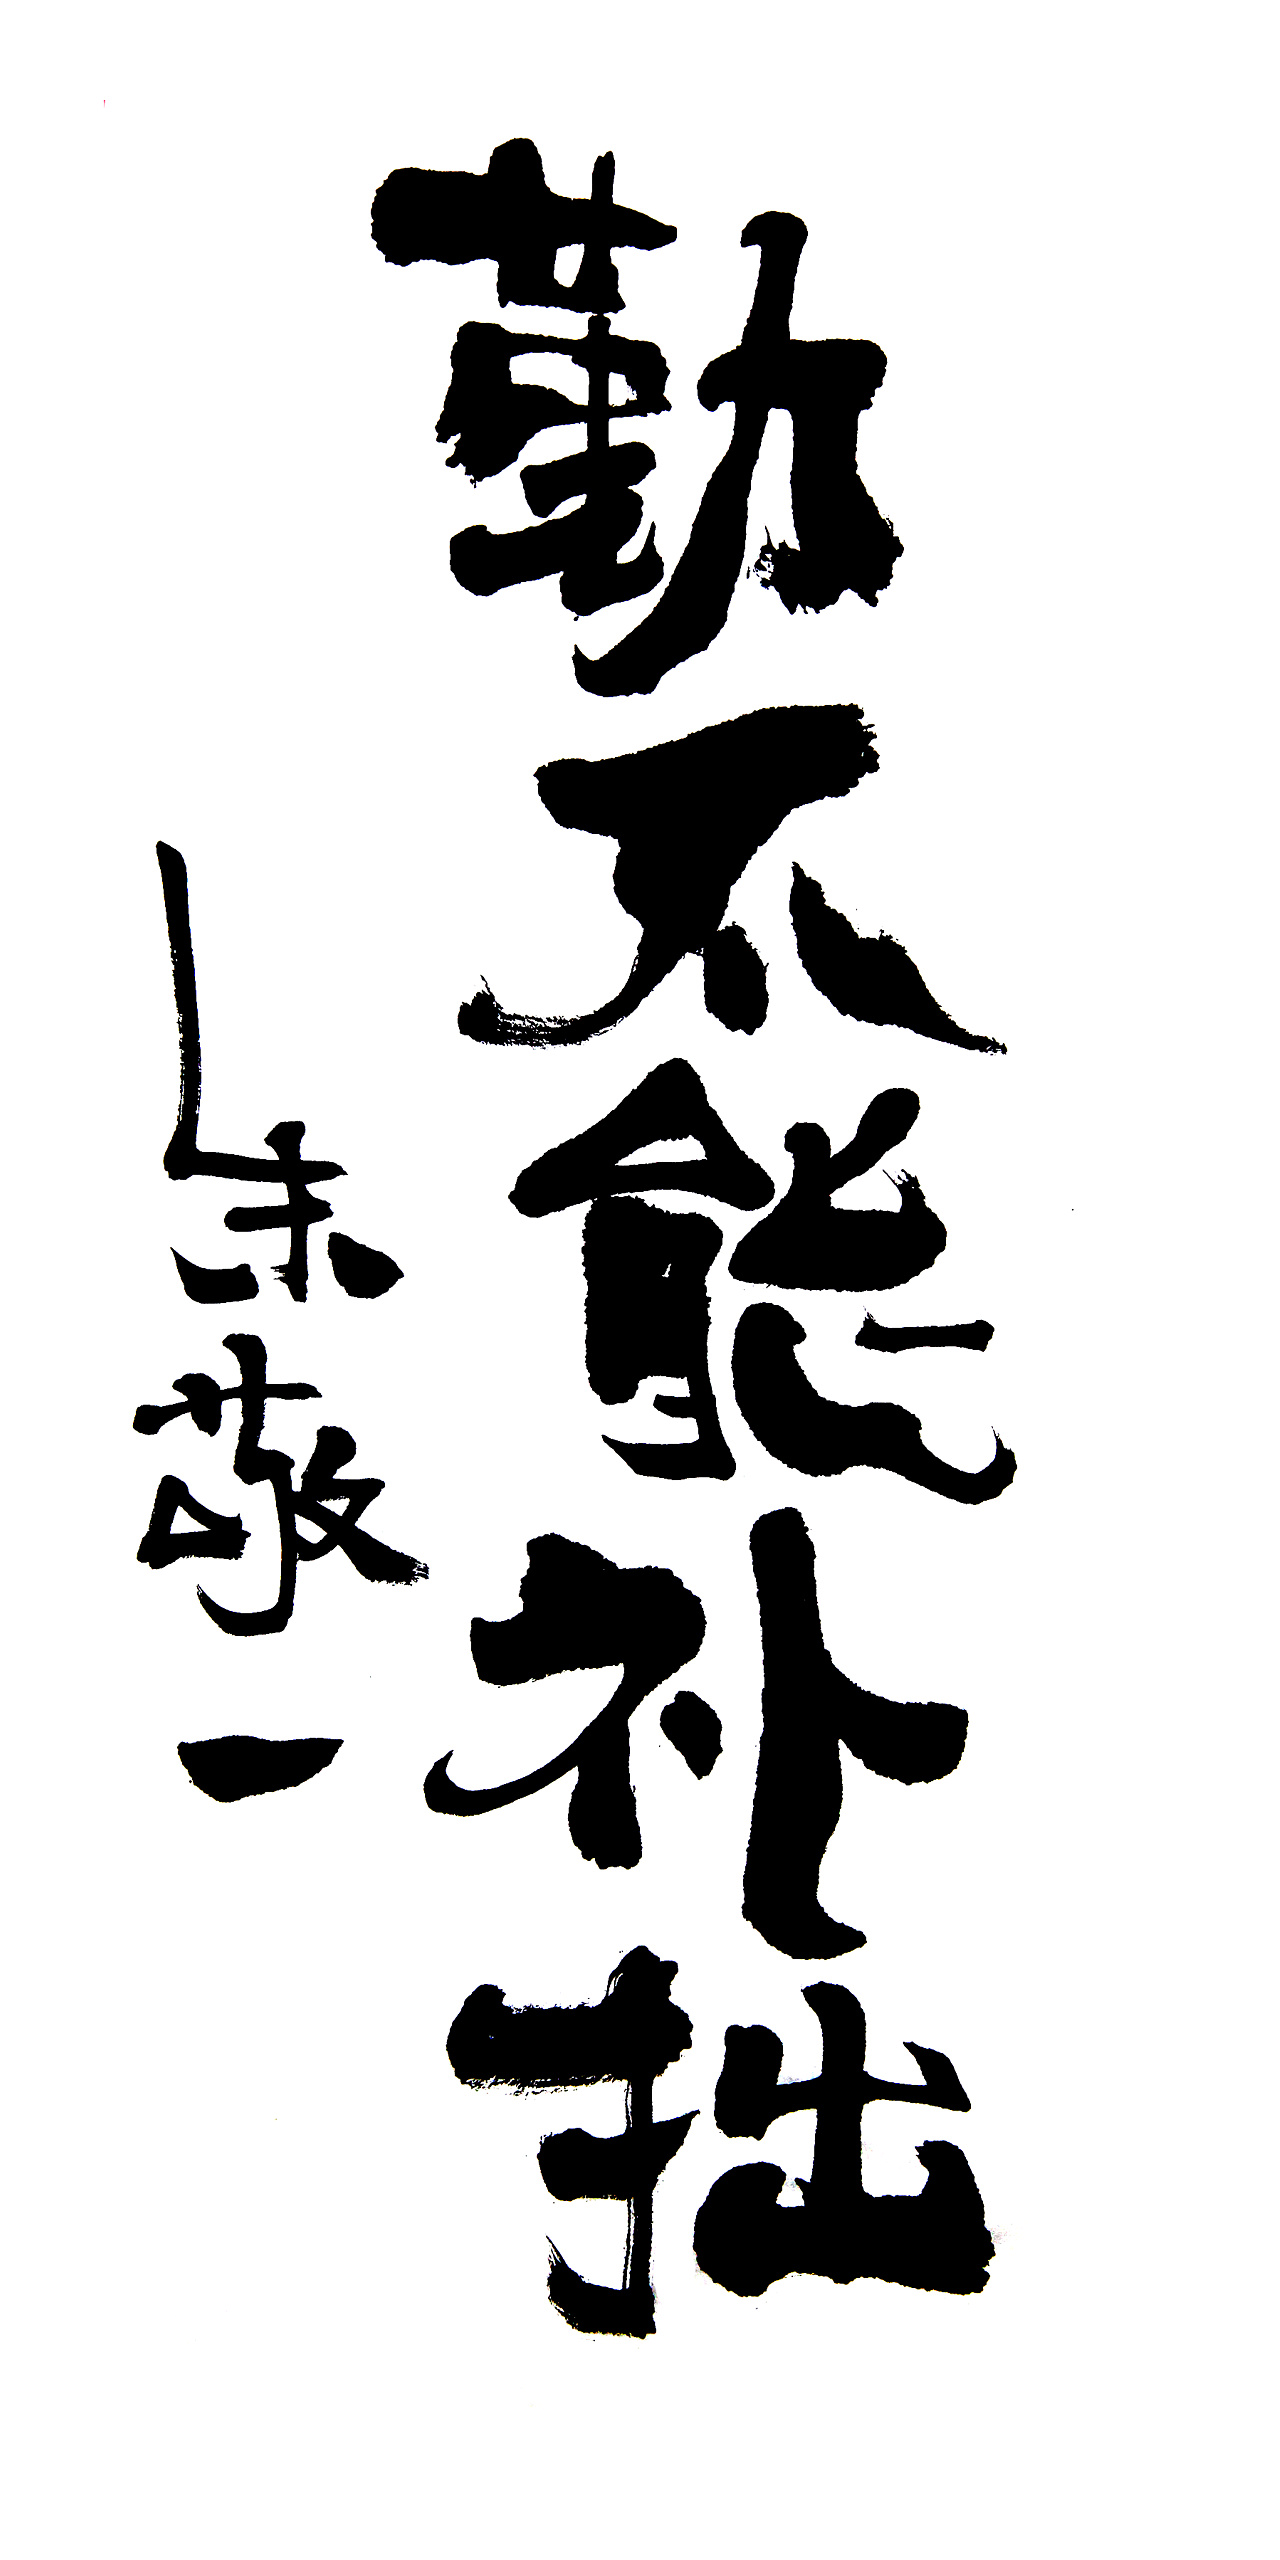 勤不能补拙
朱敬一